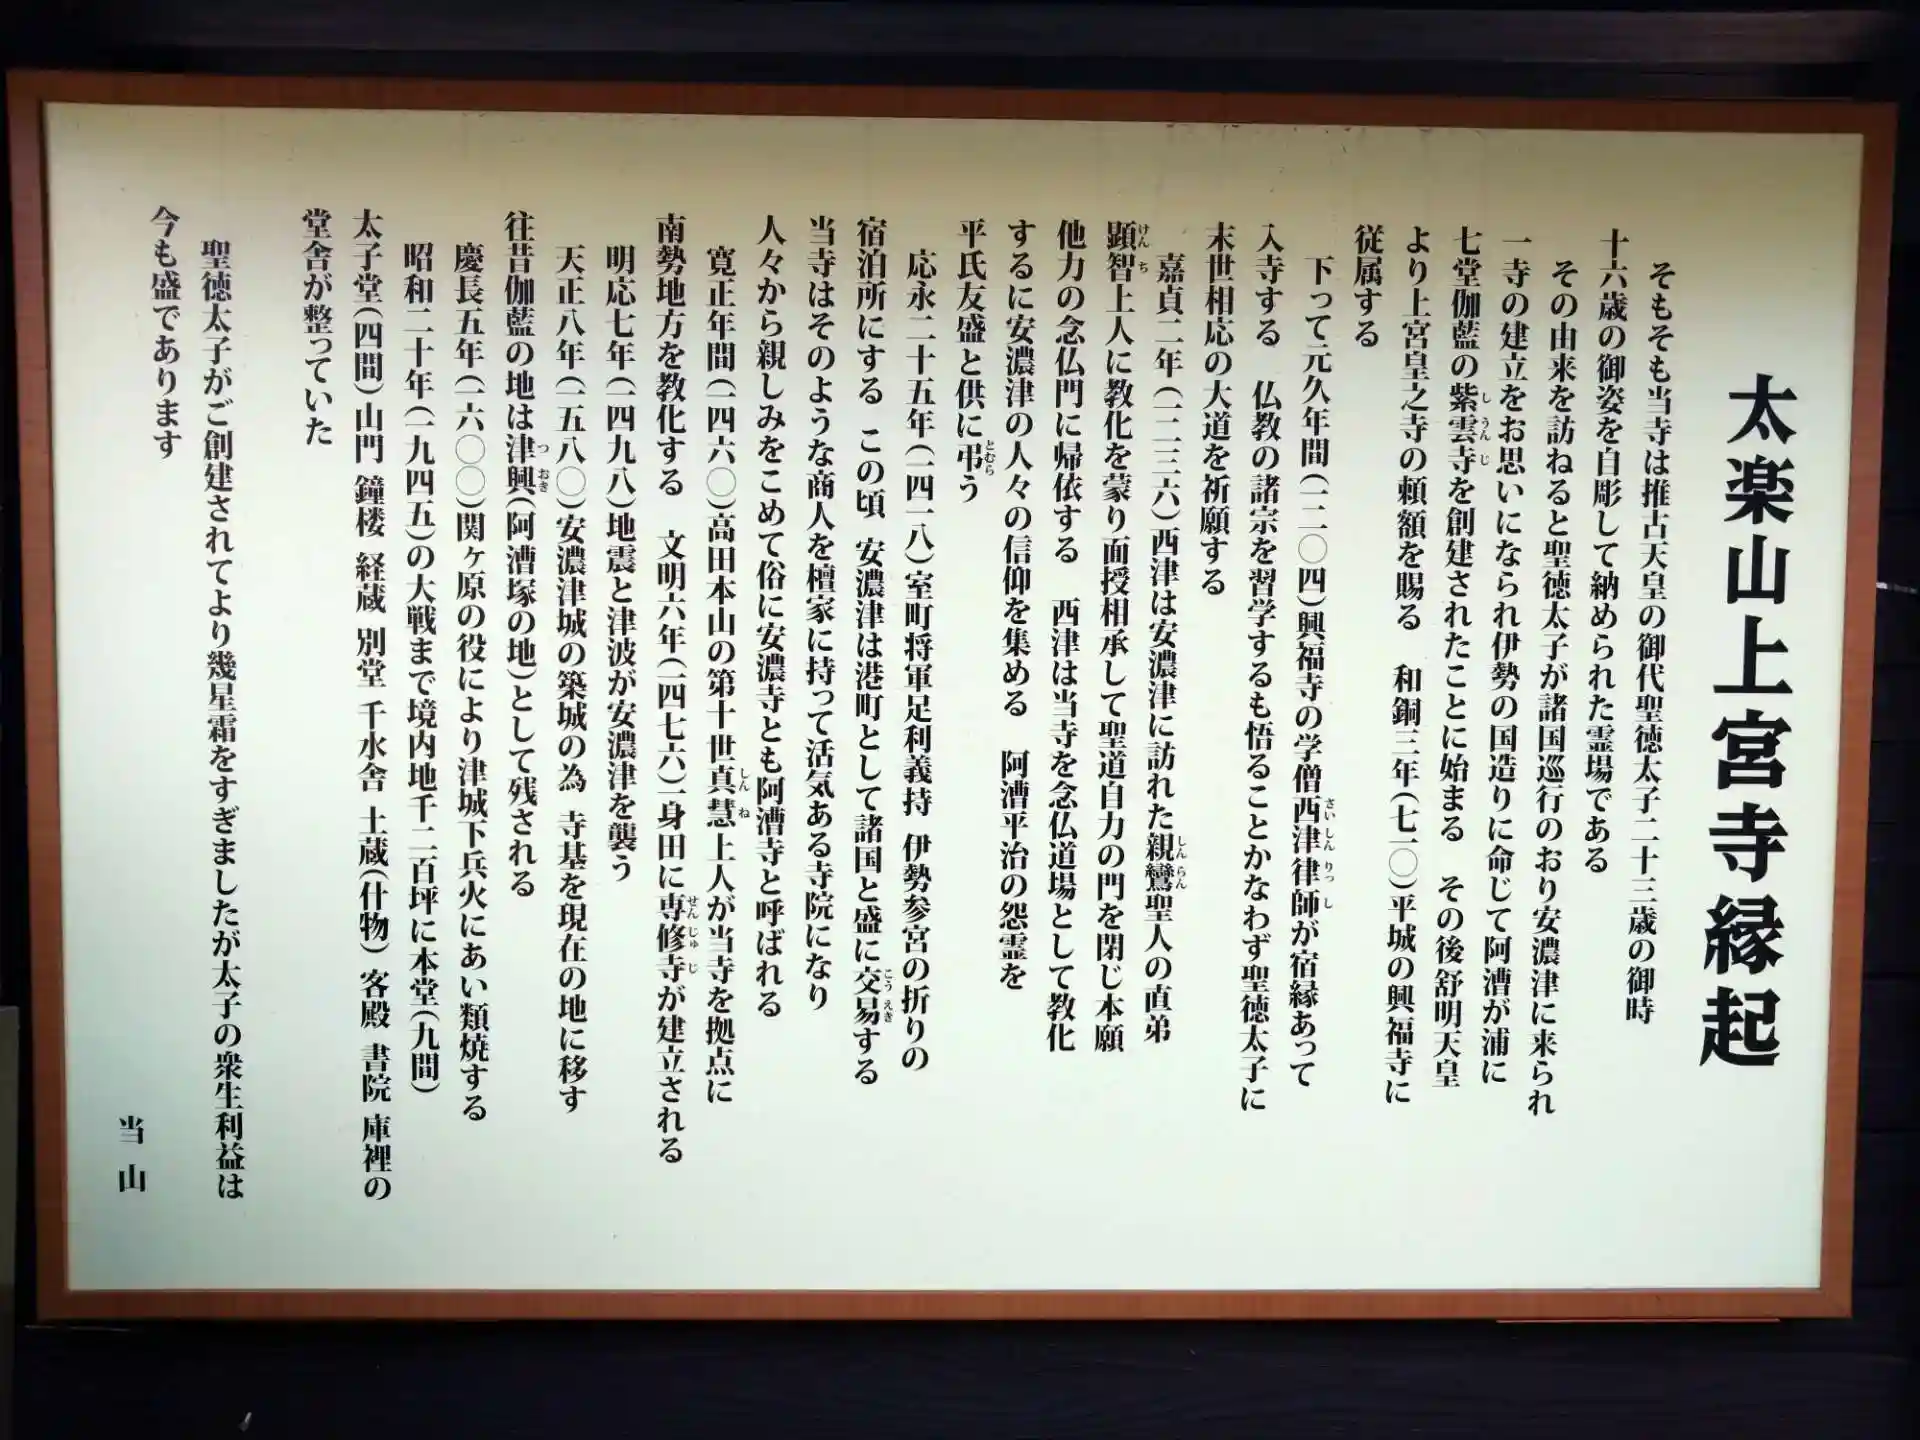 太楽山上宮寺縁起
そもそも当寺は推古天皇の御代聖徳太子二十三歳の御時
十六歳の御姿を自彫して納められた霊場である
その由来を訪ねると聖徳太子が諸国巡行のおり安濃津に来られ
一寺の建立をお思いになられ伊勢の国造りに命じて阿漕が浦に
七堂伽藍の紫雲寺を創建されたことに始まる　その後舒明天皇
より上宮皇之寺の頼額を賜る　和銅三年(七一〇)平城の興福寺に
従属する
下って元久年間(一二〇四)興福寺の学僧西津律師が宿縁あって
入寺する　仏教の諸宗を習学するも悟ることかなわず聖徳太子に
末世相応の大道を祈願する
嘉貞二年(一二三六)西津は安濃津に訪れた親鸞聖人の直弟
顕智上人に教化を蒙り面授相承して聖道自力の門を閉じ本願
他力の念仏門に帰依する　西津は当寺を念仏道場として教化
するに安濃津の人々の信仰を集める　阿漕平治の怨霊を
平氏友盛と供に弔う
応永二十五年(一四一八)室町将軍足利義持 伊勢参宮の折りの
宿泊所にする この頃 安濃津は港町として諸国と盛に交易する
当寺はそのような商人を檀家に持って活気ある寺院になり
人々から親しみをこめて俗に安濃寺とも阿漕寺と呼ばれる
寛正年間(一四六〇)高田本山の第十世真慧上人が当寺を拠点に
南勢地方を教化する　文明六年(一四七六)一身田に専修寺が建立される
明応七年(一四九八)地震と津波が安濃津を襲う
天正八年(一五八〇)安濃津城の築城の為 寺基を現在の地に移す
往昔伽藍の地は津興(阿漕塚の地)として残される
慶長五年(一六〇〇)関ヶ原の役により津城下兵火にあい類焼する
昭和二十年(一九四五)の大戦まで境内地千二百坪に本堂(九間)
太子堂(四間) 山門 鐘楼 経蔵 別堂 千水舎 土蔵(什物) 客殿 書院 庫裡の
堂舎が整っていた
聖徳太子がご創建されてより幾星霜をすぎましたが太子の衆生利益は
今も盛であります
当山